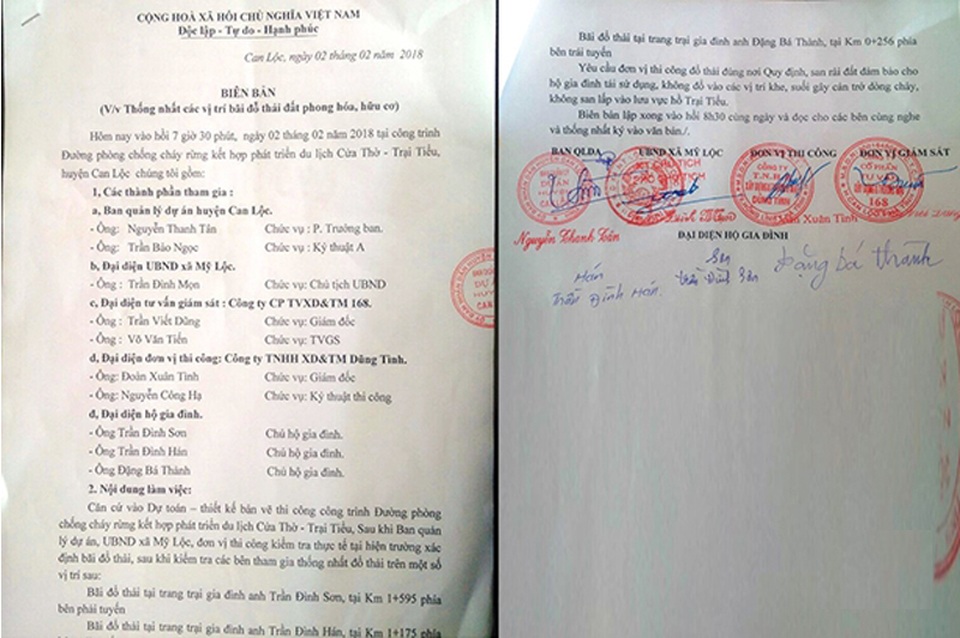 CỘNG HOÀ XÃ HỘI CHỦ NGHĨA VIỆT NAM
Độc lập - Tự do - Hạnh phúc
Can Lộc, ngày 02 tháng 02 năm 2018
BIÊN BẢN
(V/v Thống nhất các vị trí bãi đổ thải đất phong hóa, hữu cơ)
Hôm nay vào hồi 7 giờ 30 phút, ngày 02 tháng 02 năm 2018 tại công trình
Đường phòng chống cháy rừng kết hợp phát triển du lịch Cửa Thờ - Trại Tiểu,
huyện Can Lộc chúng tôi gồm:
1, Các thành phần tham gia :
a, Ban quản lý dự án huyện Can Lộc.
- Ông: Nguyễn Thanh Tân Chức vụ : P. Trưởng ban.
- Ông: Trần Bảo Ngọc Chức vụ : Kỹ thuật A
b, Đại diện UBND xã Mỹ Lộc.
- Ông : Trần Đình Mọn Chức vụ: Chủ tịch UBND
c, Đại diện tư vấn giám sát : Công ty CP TVXD&TM 168.
- Ông : Trần Viết Dũng Chức vụ: Giám đốc
- Ông : Võ Văn Tiến Chức vụ: TVGS
d, Đại diện đơn vị thi công: Công ty TNHH XD&TM Dũng Tình.
- Ông: Đoàn Xuân Tình Chức vụ: Giám đốc
- Ông: Nguyễn Công Hạ Chức vụ: Kỹ thuật thi công
đ, Đại diện hộ gia đình.
- Ông Trần Đình Sơn Chủ hộ gia đình.
- Ông Trần Đình Hán Chủ hộ gia đình.
- Ông Đặng Bá Thành Chủ hộ gia đình.
2. Nội dung làm việc:
Căn cứ vào Dự toán – thiết kế bản vẽ thi công công trình Đường phòng
chống cháy rừng kết hợp phát triển du lịch Cửa Thờ - Trại Tiểu, Sau khi Ban quản
lý dự án, UBND xã Mỹ Lộc, đơn vị thi công kiểm tra thực tế tại hiện trường xác
định bãi đổ thải, sau khi kiểm tra các bên tham gia thống nhất đổ thải trên một số
vị trí sau:
Bãi đổ thải tại trang trại gia đình anh Trần Đình Sơn, tại Km 1+595 phía
bên phải tuyến
Bãi đổ thải tại trang trại gia đình anh Trần Đình Hán, tại Km 1+175 phía
Bãi đổ thải tại trang trại gia đình anh Đặng Bá Thành, tại Km 0+256 phía
bên trái tuyến
Yêu cầu đơn vị thi công đổ thải đúng nơi Quy định, san rải đất đảm bảo cho
hộ gia đình tái sử dụng, không đổ vào các vị trí khe, suối gây cản trở dòng chảy,
không san lấp vào lưu vực hồ Trại Tiểu.
Biên bản lập xong vào hồi 8h30 cùng ngày và đọc cho các bên cùng nghe
và thống nhất ký vào văn bản./.
BAN QLDA UBND XÃ MỸ LỘC ĐƠN VỊ THI CÔNG ĐƠN VỊ GIÁM SÁT
Nguyễn Thanh Tân
ĐẠI DIỆN HỘ GIA ĐÌNH
Hán Sơn Đặng bá Thành
Trần Đình Hán. Trần Đình Sơn